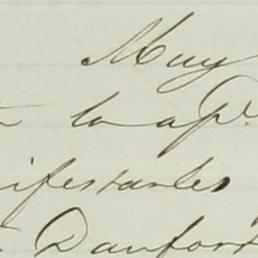 Muy
la apª
ifestarles
Danfort